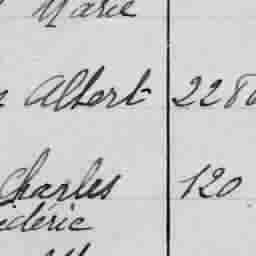 Marie
Albert 228
Charles 120
édéric